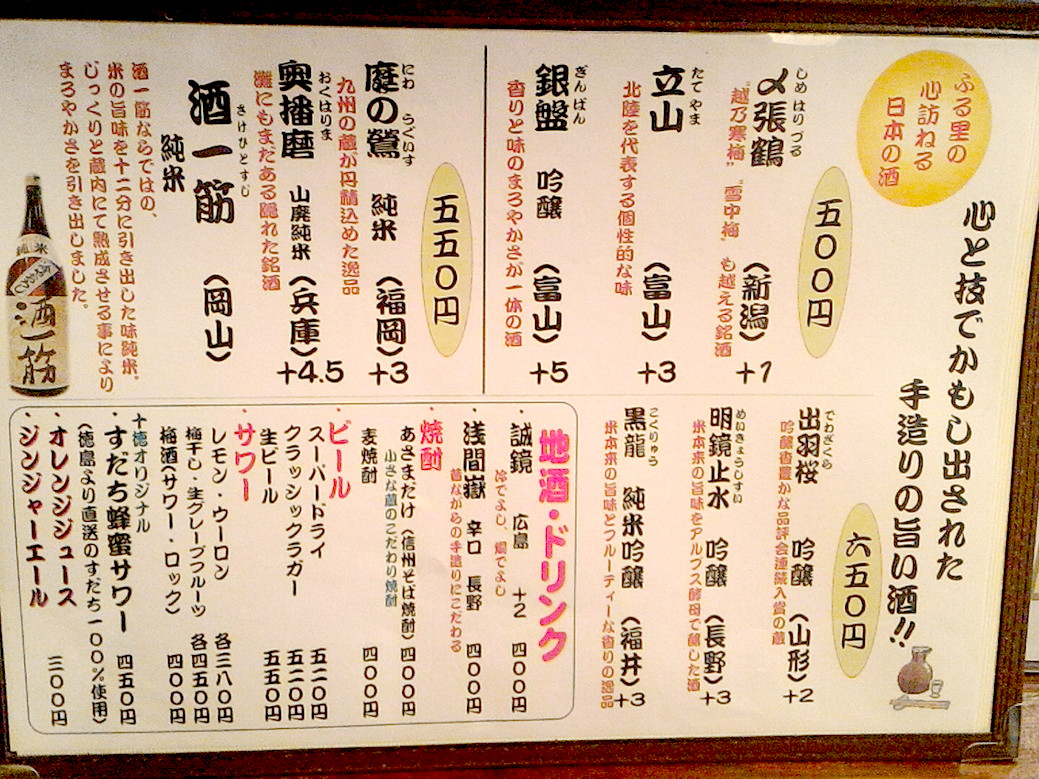 ふる里の
心訪ねる
日本の酒
心と技でかもし出された
手造りの旨い酒!!
五〇〇円
しめはりづる
〆張鶴 (新潟) +1
"越乃寒梅" "雪中梅" も越える銘酒
たてやま
立山 (富山) +3
北陸を代表する個性的な味
ぎんばん
銀盤 吟醸 (富山) +5
香りと味のまろやかさが一体の酒
五五〇円
にわ うぐいす
庭の鶯 純米 (福岡) +3
九州の蔵が丹精込めた逸品
おくはりま
奥播磨 山廃純米 (兵庫) +4.5
灘にもまだある隠れた銘酒
さけひとすじ
酒一筋 (岡山)
純米
酒一筋ならではの、
米の旨味を十二分に引き出した味純米。
じっくりと蔵内にて熟成させる事により
まろやかさを引き出しました。
純米
酒一筋
六五〇円
でわざくら
出羽桜 吟醸 (山形) +2
吟醸香豊かな品評会連続入賞の蔵
めいきょうしすい
明鏡止水 吟醸 (長野) +3
米本来の旨味をアルプス酵母で醸した酒
こくりゅう
黒龍 純米吟醸 (福井) +3
米本来の旨味とフルーティーな香りの逸品
地酒・ドリンク
・誠鏡 広島 +2 四〇〇円
冷でよし、燗でよし
・浅間嶽 辛口 長野 四〇〇円
昔ながらの手造りにこだわる
・焼酎
あさまだけ (信州そば焼酎) 四〇〇円
小さな蔵のこだわり焼酎
麦焼酎 四〇〇円
・ビール
スーパードライ 五二〇円
クラッシックラガー 五二〇円
生ビール 五五〇円
・サワー
レモン・ウーロン 各三八〇円
梅干し・生グレープフルーツ 各四五〇円
梅酒(サワー・ロック) 四〇〇円
十徳オリジナル
・すだち蜂蜜サワー 四五〇円
(徳島より直送のすだち一〇〇%使用)
・オレンジジュース
・ジンジャーエール 三〇〇円